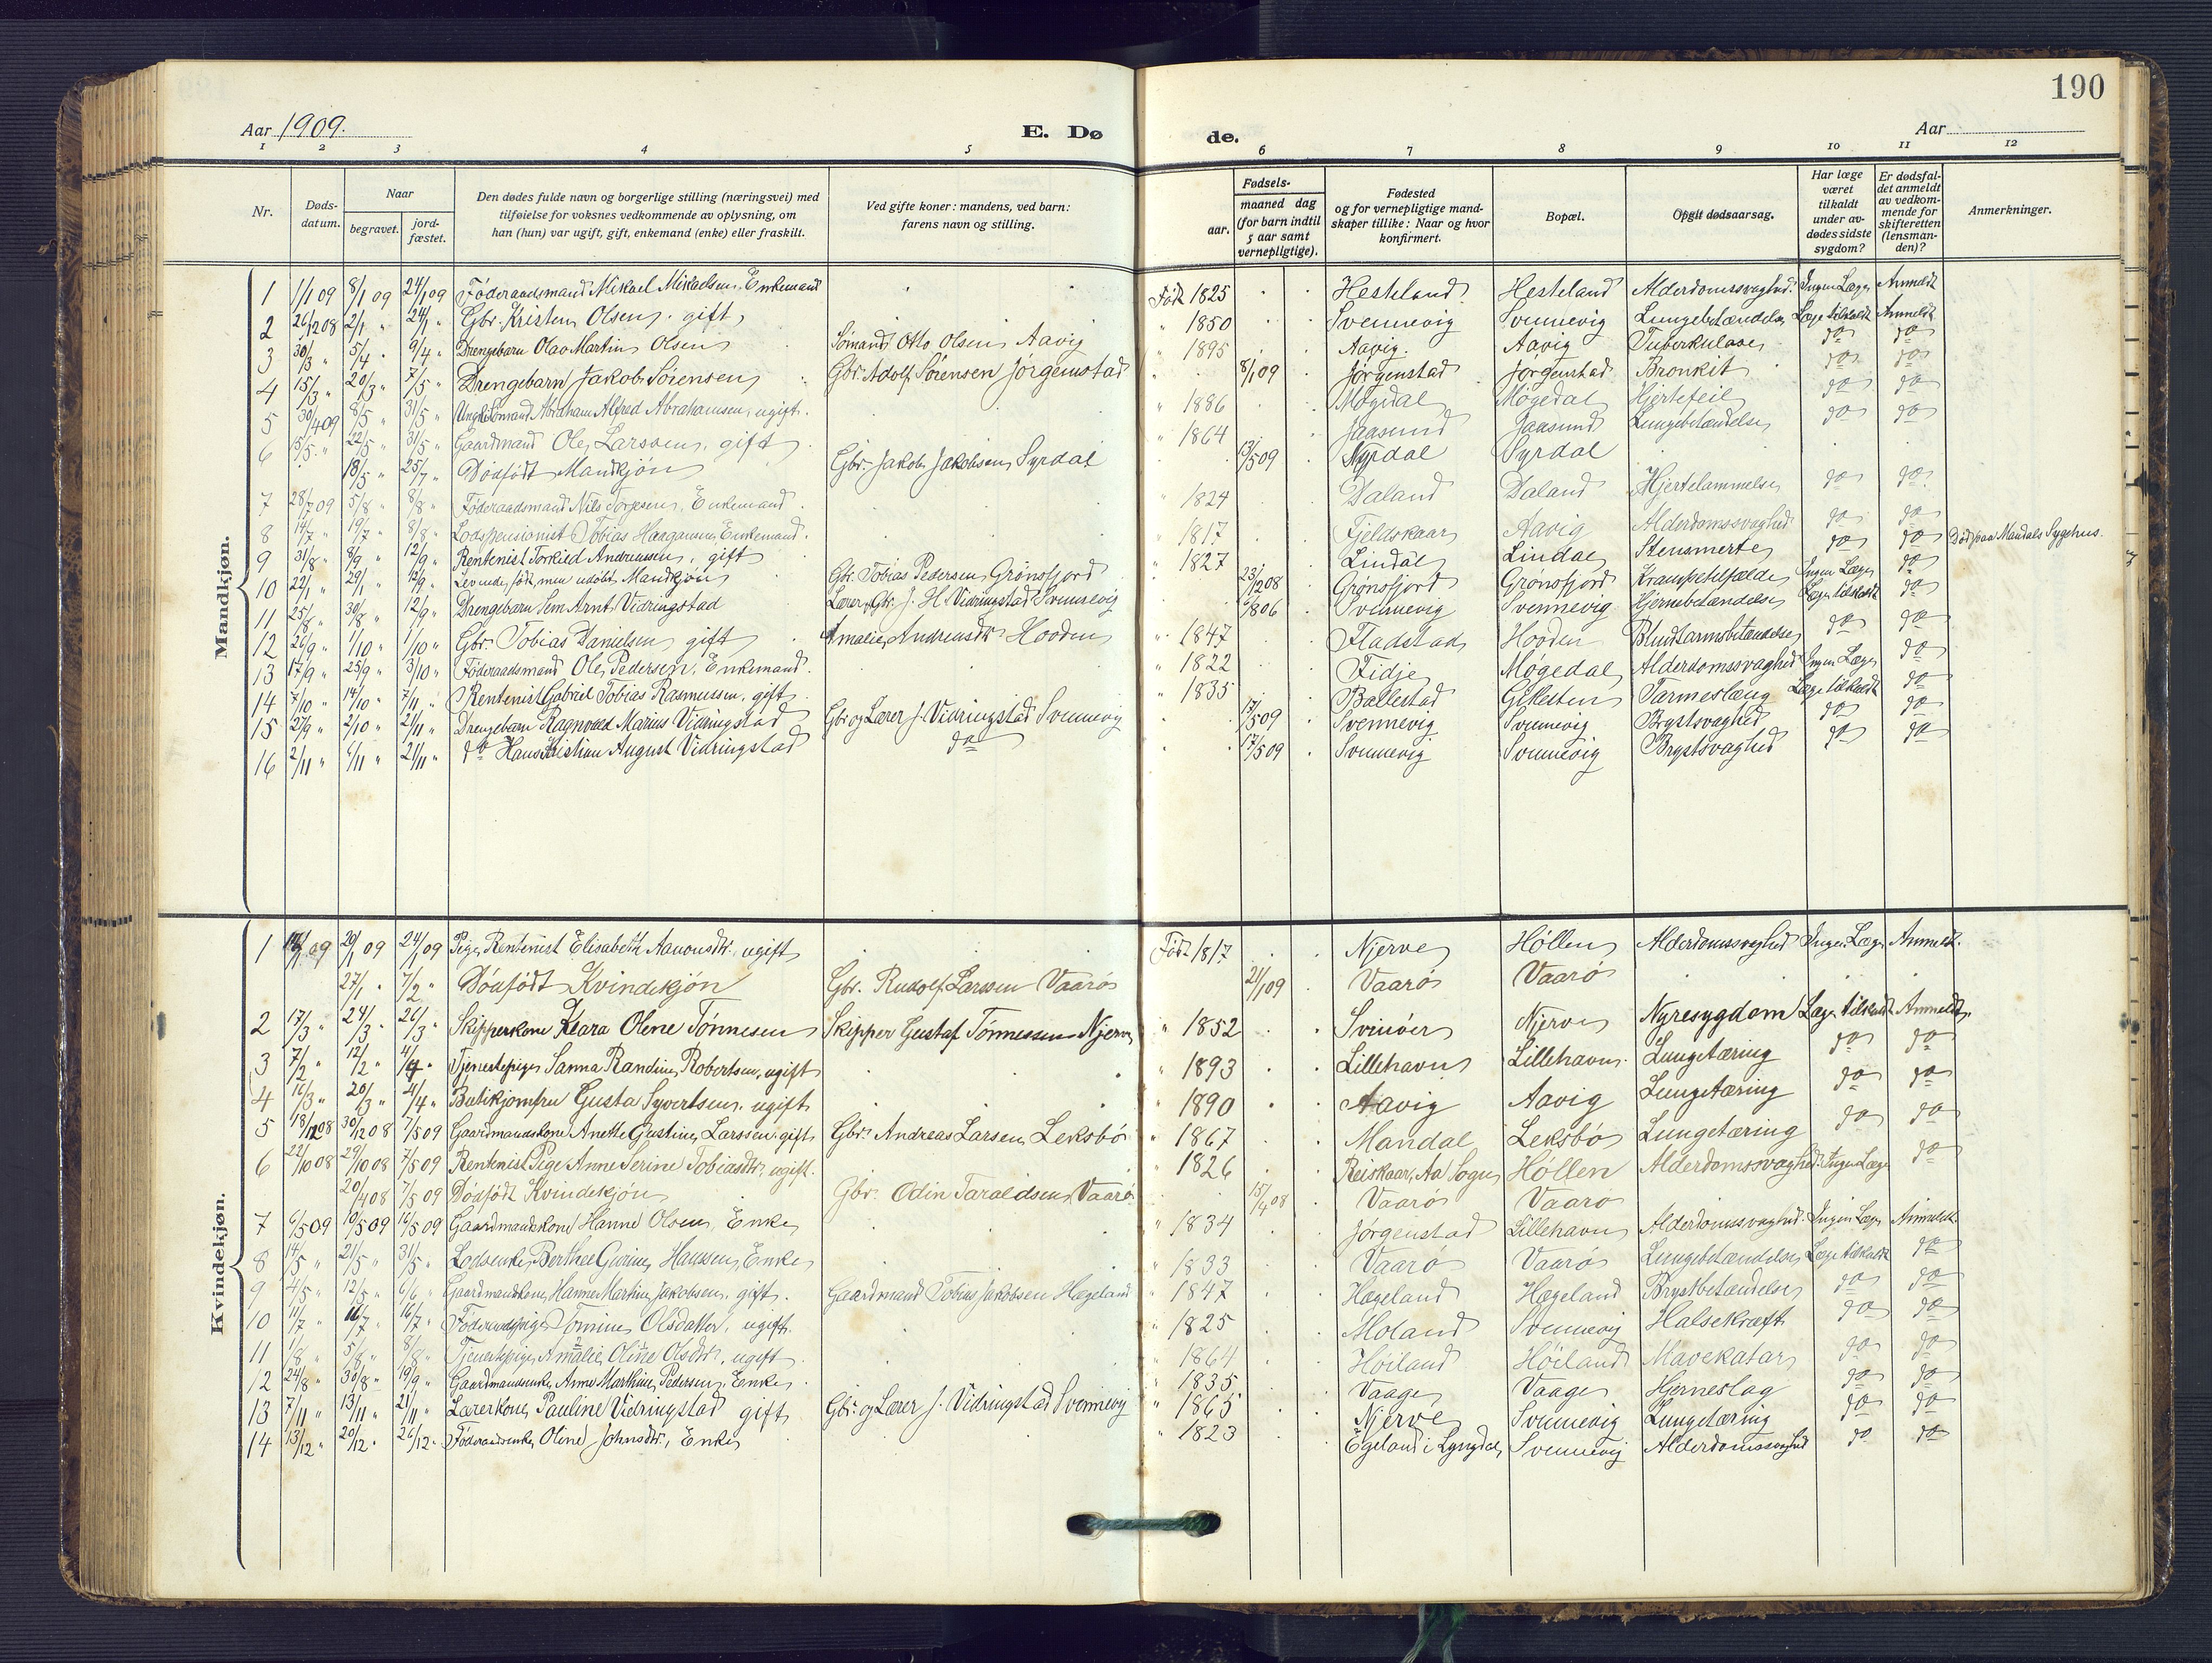 190
Aar 1909.
E. Døde.
Aar
1 2 3 4 5 6 7 8 9 10 11 12
Nr.
Døds-datum.
Naar
begravet.
jord-fæstet.
Den dødes fulde navn og borgerlige stilling (næringsvei) med
tilføielse for voksnes vedkommende av oplysning, om
han (hun) var ugift, gift, enkemand (enke) eller fraskilt.
Ved gifte koner: mandens, ved barn:
farens navn og stilling.
Fødsels-
aar.
maaned dag
(for barn indtil
5 aar samt
vernepligtige).
Fødested
og for vernepligtige mand-
skaper tillike: Naar og hvor
konfirmert.
Bopæl.
Opgit dødsaarsag.
Har læge
været
tilkaldt
under av-
dødes sidste
sygdom?
Er dødsfal-
det anmeldt
av vedkom-
mende for
skifteretten
(lensman-
den)?
Anmerkninger.
Mandkjøn.
1 1/1 09 8/1 09 24/1 09 Føderaadsmand Mikael Mikaelsen, Enkemand Født 1825 Hesteland Hesteland Alderdomssvaghed Ingen Læge Anmeldt
2 26/12 08 2/1 " 24/1 " Gbr. Kristen Olsen, gift " 1850 Svennevig Svennevig Lungebetændelse Læge tilkaldt Anmeldt
3 30/3 " 5/4 " 9/4 " Drengebarn Olav Martin Olsen Sømand Otto Olsen Aavig " 1895 Aavig Aavig Tuberkulose do do
4 15/3 " 20/3 " 7/5 " Drengebarn Jakob Sørensen Gbr. Adolf Sørensen Jørgenstad 8/1 09 Jørgenstad Jørgenstad Bronkit do do
5 30/4 09 8/5 " 31/5 " Ungk. Sømand Abraham Alfred Abrahamsen, ugift. " 1886 Møgedal Møgedal Hjertefeil do do
6 15/5 " 22/5 " 31/5 " Gaardmand Ole Larssen, gift " 1864 Jaasund Jaasund Lungebetændelse do do
18/5 " 25/7 " Dødfødt Mandkjøn Gbr. Jakob Jakobsen Syrdal 13/5 09 Syrdal Syrdal
7 28/7 09 5/8 " 8/8 " Føderaadsmand Nils Torjesen, Enkemand " 1824 Daland Daland Hjertelammelse do do
8 14/7 " 19/7 " 8/8 " Lodspensionist Tobias Haagensen, Enkemand. " 1817 Fjeldskaar Aavig Alderdomssvaghed do do
9 31/8 " 8/9 " 12/9 " Rentenist Torkild Andreassen, gift " 1827 Lindal Lindal Stensmerte do do Død paa Mandals Sygehus.
10 22/1 " 29/1 " 12/9 " Levende født, men udøbt Mandkjøn Gbr. Tobias Pedersen Grønsfjord 23/12 08 Grønsfjord Grønsfjord Krampetilfælde Ingen Læge do
11 25/8 " 30/8 " 12/9 " Drengebarn Sem Arnt Vidringstad Lærer, Gbr. J. H. Vidringstad Svennevig Svennevig Svennevig Hjernebetændelse Læge tilkaldt do
12 26/9 " 1/10 " 1/10 " Gbr. Tobias Danielsen, gift Amalie Andreasdtr. Hooden " 1847 Fladstad Hooden Blindtarmsbetændelse do do
13 17/9 " 25/9 " 3/10 " Føderaadsmand Ole Pedersen, Enkemand. " 1822 Fidje Møgedal Alderdomssvaghed Ingen Læge do
14 7/10 " 14/10 " 7/11 " Rentenist Gabriel Tobias Rasmussen, gift " 1835 Ballestad Gillesten Tarmeslæng Læge tilkaldt do
15 27/9 " 2/10 " 21/11 " Drengebarn Ragnvald Marius Vidringstad Gbr. og Lærer J. Vidringstad Svennevig 17/5 09 Svennevig Svennevig Brystsvaghed do do
16 2/11 " 6/11 " 21/11 " do Hans Kristian August Vidringstad do 17/5 09 Svennevig Svennevig Brystsvaghed do do
Kvindekjøn.
1 09 20/1 09 24/1 09 Pige, Rentenist Elisabeth Aanonsdtr., ugift Født 1817 Njerve Høllen Alderdomssvaghed Ingen Læge Anmeldt.
27/1 " 7/2 " Dødfødt Kvindekjøn Gbr. Rudolf Larssen Vaarø 21/1 09 Vaarø Vaarø
2 17/3 " 24/3 " 26/3 " Skipperkone Klara Olene Tønnesen Skipper Gustaf Tønnessen Njerve " 1852 Svinøer Njerve Nyresygdom Læge tilkaldt Anmeldt.
3 7/2 " 12/2 " 4/4 " Tjenestepige Sanna Randine Robertsen, ugift " 1893 Lillehavn Lillehavn Lungetæring do do
4 16/3 " 20/3 " 4/4 " Butikjomfru Gusta Syvertsen, ugift " 1890 Aavig Aavig Lungetæring do do
5 18/12 08 30/12 08 7/5 09 Gaardmandskone Anette Gustine Larssen, gift Gbr. Andreas Larsen Leksbø " 1867 Mandal Leksbø Lungetæring do do
6 22/10 08 29/10 08 7/5 09 Rentenist Pige Anne Serine Tobiasdtr., ugift. " 1826 Reiskaar, Aa Sogn Høllen Alderdomssvaghed Ingen Læge do
20/4 08 7/5 09 Dødfødt Kvindekjøn Gbr. Odin Taraldsen Vaarø 15/4 08 Vaarø Vaarø
7 6/5 09 10/5 09 16/5 09 Gaardmandskone Hanne Olsen, Enke " 1834 Jørgenstad Lillehavn Alderdomssvaghed Ingen Læge Anmeldt
8 14/5 " 21/5 " 31/5 " Lodsenke Berthe Gurine Hanssen, Enke " 1833 Vaarø Vaarø Lungebetændelse Læge tilkaldt do
9 4/5 " 12/5 " 6/6 " Gaardmandskone Hanne Martine Jakobsen, gift. Gaardmand Tobias Jakobsen Hægeland " 1847 Hægeland Hægeland Brystbetændelse do do
10 11/7 " 16/7 " 16/7 " Føderaadspige Tomine Olsdatter, ugift. " 1825 Moland Svennevig Halsekræft do do
11 1/8 " 5/8 " 8/8 " Tjenestepige Amalie Oline Olsdtr., ugift " 1864 Høiland Høiland Mavekatar do do
12 24/8 " 30/8 " 19/9 " Gaardmandsenke Anne Marthine Pedersen, Enke " 1835 Vaage Vaage Hjerneslag do do
13 7/11 " 13/11 " 21/11 " Lærerkone Pauline Vidringstad gift Gbr. og Lærer J. Vidringstad Svennevig " 1865 Njerve Svennevig Lungetæring do do
14 13/12 " 20/12 " 26/12 " Føderaadsenke Oline Johnsdtr., Enke " 1823 Egeland i Lyngdal Svennevig Alderdomssvaghed do do